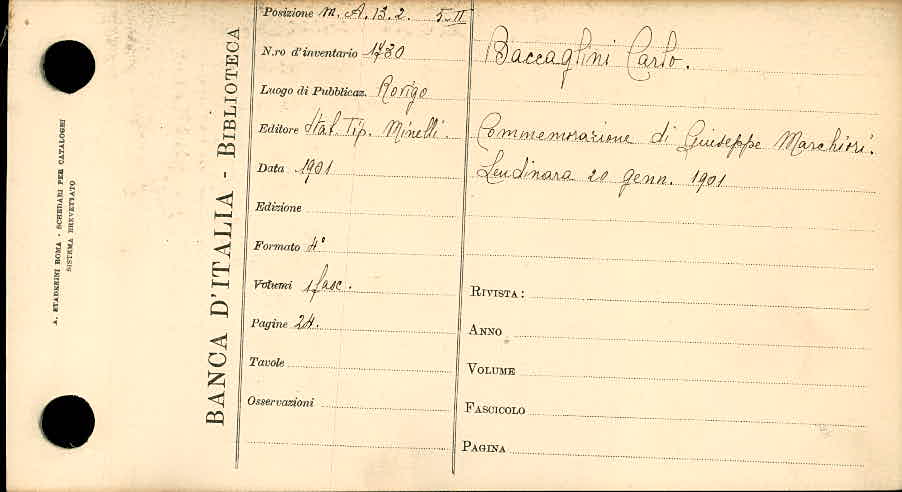 A. STADERINI ROMA - SCHEDARI PER CATALOGHI
SISTEMA BREVETTATO
BANCA D'ITALIA - BIBLIOTECA
Posizione M. A. 13. 2. 5-II
N.ro d'inventario 1730
Luogo di Pubblicaz. Rovigo
Editore Stab. Tip. Minelli.
Data 1901
Edizione
Formato 4°
Volumi 1 fasc.
Pagine 24.
Tavole
Osservazioni
Baccaglini Carlo.
Commemorazione di Giuseppe Marchiori.
Lendinara 20 genn. 1901
RIVISTA:
ANNO
VOLUME
FASCICOLO
PAGINA